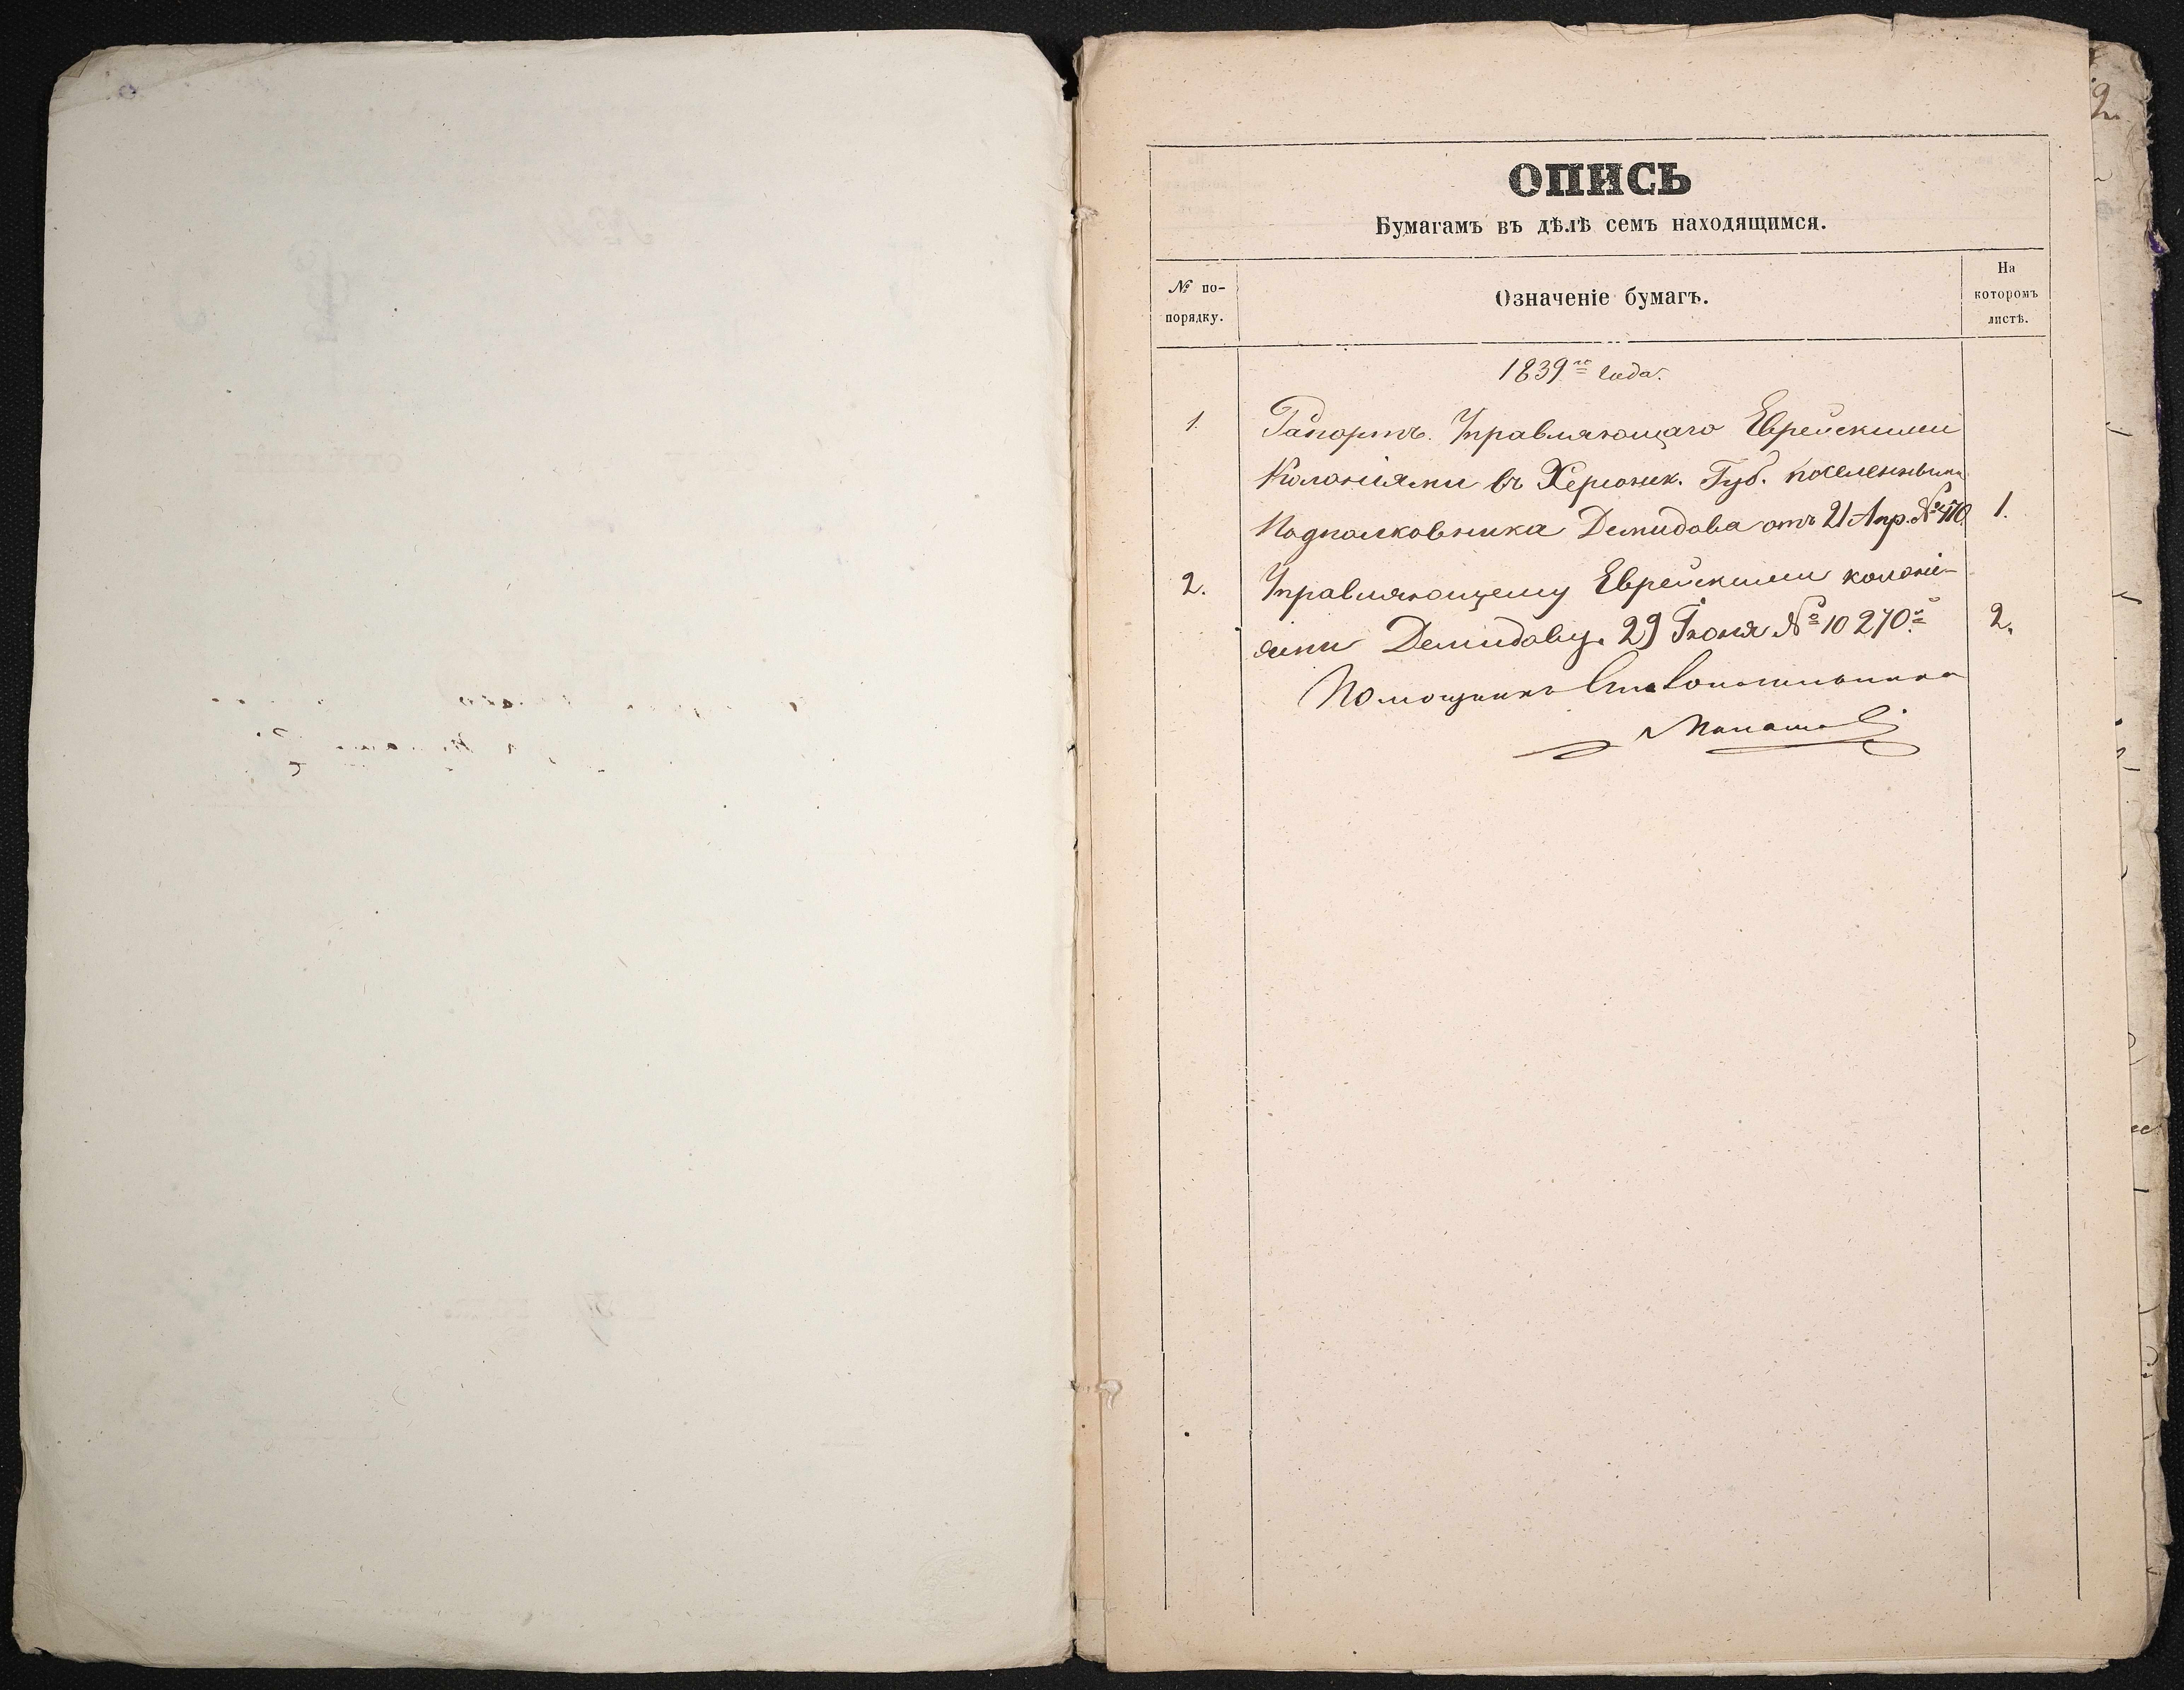 ОПИСЬ
Бумагамъ въ дѣлѣ семъ находящимся.
№ по-
порядку.
Означеніе бумагъ.
На
которомъ
листѣ.
1839го года.
1. Рапортъ Управляющаго Еврейскими
Колоніями въ Херсонск. Губ. поселенными
Подполковника Демидова отъ 21 Апр. № 470. 1.
2. Управляющему Еврейскими колоні-
ями Демидову. 29 Іюня № 10270. 2.
Помощникъ